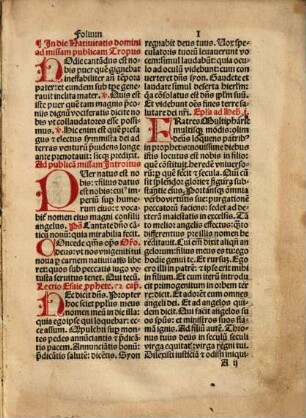 Folium I
¶ In die Natiuitatis domini
ad missam publicam Tropus
HOdie cantādus est no
bis puer quē gignebat
inefabiliter añ tēpora
pater: et eundem sub tpe gene-
rauit inclita mater. v. Quis est
iste puer quē tam magnis pco-
nijs dignū vociferatis dicite no
bis vt collaudatores esse pos-
simus. v. Hic enim est quē presa-
gus et electus symmista dei ad
terras venturū puidens longe
ante prenotauit, sicq; predixit.
Ad publicā missam Introitus
PUer natus est no-
bis: filius datus
est nobis: cuius im-
periū sup hume-
rum eius: et voca-
bit nomen eius magni consilij
angelus. ps Cantate dño cāti-
cū nouū: quia mirabilia fecit.
COncede qs omps Ofo.
deus: vt nos vnigeniti tui
noua p carnem natiuitas libe-
ret: quos sub peccati iugo ve-
tusta seruitus tenet. Qui tecū.
Lectio Esaie pphete.
HEc dicit dñs. Propter
hoc sciet pplus meus
nomen meū in die illa:
quia ego ipse qui loquebar: ec-
ce assum. Quam pulchri sup montes
pedes annūciantis et pdicātis
pacem. Annunciātis bonū:
pdicātis salutē: dicētis. Syon
regnabit deus tuus. Vox spe-
culatorū tuorū leuauerunt vo-
cem simul laudabūt: quia ocu-
lo ad oculū videbunt: cum con-
uerterit dñs syon. Gaudete et
laudate simul deserta hierlm:
quia cōsolatus est dñs pplm suū.
Et videbunt oēs fines terre sa-
lutare dei nri.
FRatres. Multipharie
multisq; modis: olim
deus loquens patrib
in prophetis: nouissime diebus
istis locutus est nobis in filio:
quē cōstituit heredē vniuerso-
rum: p quē fecit et secula. Qui cū
sit splendor glorie et figura sub-
stantie eius. Portansq; omnia
verbo virtutis sue: purgationē
peccatorum faciens: sedet ad
dexterā maiestatis in excelsis.
hereditauit. Cui em̄ dixit aliqn̄ an-
gelorum: filius meus es tu ego
hodie genui te. Et rursus. Ego
ero illi in patrē: et ipse erit mihi
in filium. Et cum iterū introdu-
cit primogenitum in orbem ter-
re: dicit. Et adorēt eum omnes
angeli dei. Et ad angelos qui-
dem dicit. Qui facit angelos su-
os spūs: et ministros suos flam-
mam ignis. Ad filiū autē. Thro-
nus tuus deus in seculū seculi:
virga equitatis virga regni tui.
Dilexisti iusticiā et odisti iniqui-
A ij